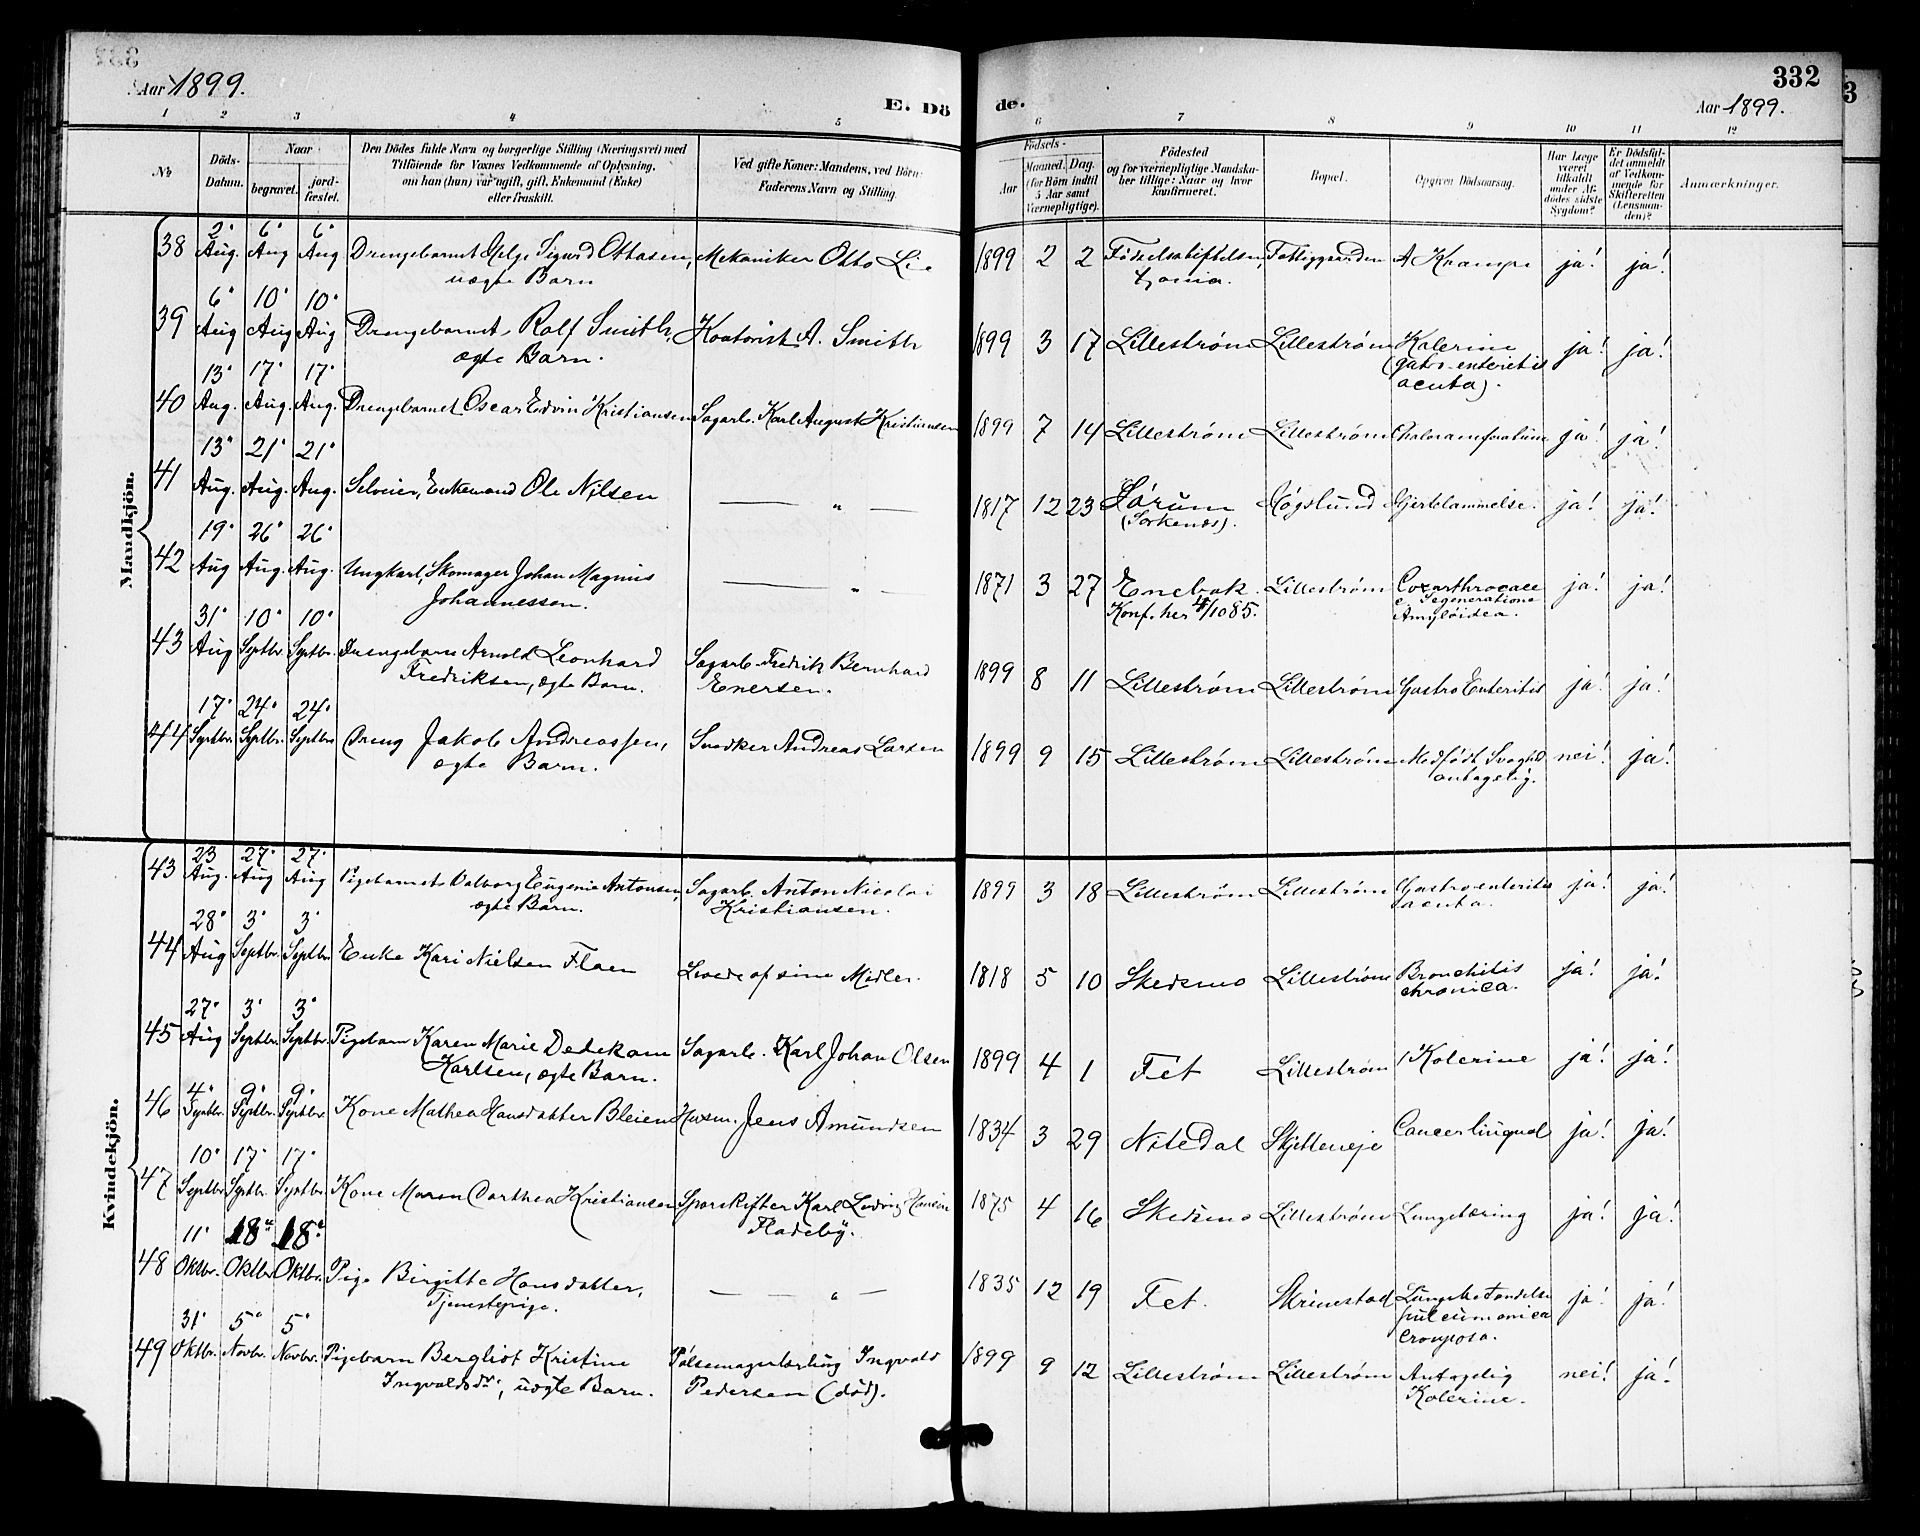 Aar 1899.
E. Dö
de.
332
Aar 1899.
1 2 3 4 5
6 7 8 9 10 11 12
No
Döds-
Datum.
Naar
begravet.
jord-
fæstet.
Den Dödes fulde Navn og borgerlige Stilling (Næringsvei) med
Tilföiende for Voxnes Vedkommende af Oplysning,
om han (hun) var ugift, gift, Enkemand (Enke)
eller fraskilt.
Ved gifte Koner: Mandens, ved Börn:
Faderens Navn og Stilling.
Födsels-
Aar
Maaned. Dag.
(for Börn indtil
5 Aar samt
Værnepligtige).
Födested
og for værnepligtige Mandska-
ber tillige: Naar og hvor
konfirmeret.
Bopæl.
Opgiven Dödsaarsag.
Har Læge
været
tilkaldt
under Af-
dödes sidste
Sygdom?
Er Dödsfal-
det anmeldt
af Vedkom-
mende for
Skifteretten
(Lensman-
den)?
Anmærkninger.
Mandkjön.
2. 6. 6.
38 Aug. Aug Aug Drengebarnet Helge Sigurd Ottosen, Mekaniker Otto Lie 1899 2 2 Fødselsstiftelsen, Fattiggaarden Krampe ja! ja!
uægte Barn
6. 10. 10.
39 Aug Aug Aug Drengebarnet Rolf Smith, Kontorist A. Smith 1899 3 17 Lillestrøm Lillestrøm Kolerine ja! ja!
ægte Barn. (gastro-enteritis
acuta).
13. 17. 17.
40 Aug. Aug. Aug. Drengebarnet Oscar Edvin Kristiansen Sagarb. Karl August Kristiansen 1899 7 14 Lillestrøm Lillestrøm ja! ja!
13. 21. 21.
41 Aug. Aug. Aug. Selveier, Enkemand Ole Nilsen — " — 1817 12 23 Sørum Høgslund Hjertelammelse. ja! ja!
(Sorkenæs).
19. 26. 26.
42 Aug Aug. Aug. Ungkarl, Skomager Johan Magnus — " — 1871 3 27 Enebak. Lillestrøm Coxarthrocace ja! ja!
Johannessen. Konf. her 4/10 85. c. Degeneratione
Amyloidea.
31. 10. 10.
43 Aug Septbr. Septbr. Drengebarn Arnold Leonhard Sagarb. Fredrik Bernhard 1899 8 11 Lillestrøm Lillestrøm Gastro Enteritis ja! ja!
Fredriksen, ægte Barn. Enersen.
17. 24. 24.
44 Septbr. Septbr. Septbr. Dreng Jakob Andreassen, Snedker Andreas Larsen 1899 9 15 Lillestrøm Lillestrøm Medfødt Svaghed nei! ja!
ægte Barn. antagelig.
Kvindekjön.
23 27. 27.
43 Aug. Aug Aug Pigebarnet Valborg Eugenie Antonsen, Sagarb. Anton Nicolai 1899 3 18 Lillestrøm Lillestrøm Gastro enteritis ja! ja!
ægte Barn. Kristiansen. acuta.
28. 3. 3.
44 Aug Septbr. Septbr. Enke Kari Nielsen Flaen Levede af sine Midler. 1818 5 10 Skedsmo Lillestrøm Bronchitis ja! ja!
chronica.
27. 3. 3.
45 Aug Septbr. Septbr. Pigebarn Karen Marie Dedekam Sagarb. Karl Johan Olsen 1899 4 1 Fet Lillestrøm Kolerine ja! ja!
Karlsen, ægte Barn.
4. 9. 9.
46 Septbr. Septbr. Septbr. Kone Mathea Hansdatter Bleien Husm. Jens Amundsen 1834 3 29 Nitedal Skjetteneje Cancer lingual ja! ja!
10. 17. 17.
47 Septbr. Septbr. Septbr. Kone Maren Dorthea Kristiansen Sporskifter Karl Ludvig Hansen 1875 4 16 Skedsmo Lillestrøm Lungetæring ja! ja!
Fladeby.
11. 18. 18.
48 Oktbr. Oktbr. Oktbr. Pige Birgitte Hansdatter, — " — 1835 12 19 Fet. Skrinestad Lungebetændelse ja! ja!
Tjenestepige. (pneumonica
crouposa.
31. 5. 5.
49 Oktbr. Novbr. Novbr. Pigebarn Bergliot Kristine Pølsemagerlærling Ingvald 1899 9 12 Lillestrøm Lillestrøm Antagelig nei! ja!
Ingvaldsdr., uægte Barn. Pedersen (død). Kolerine.